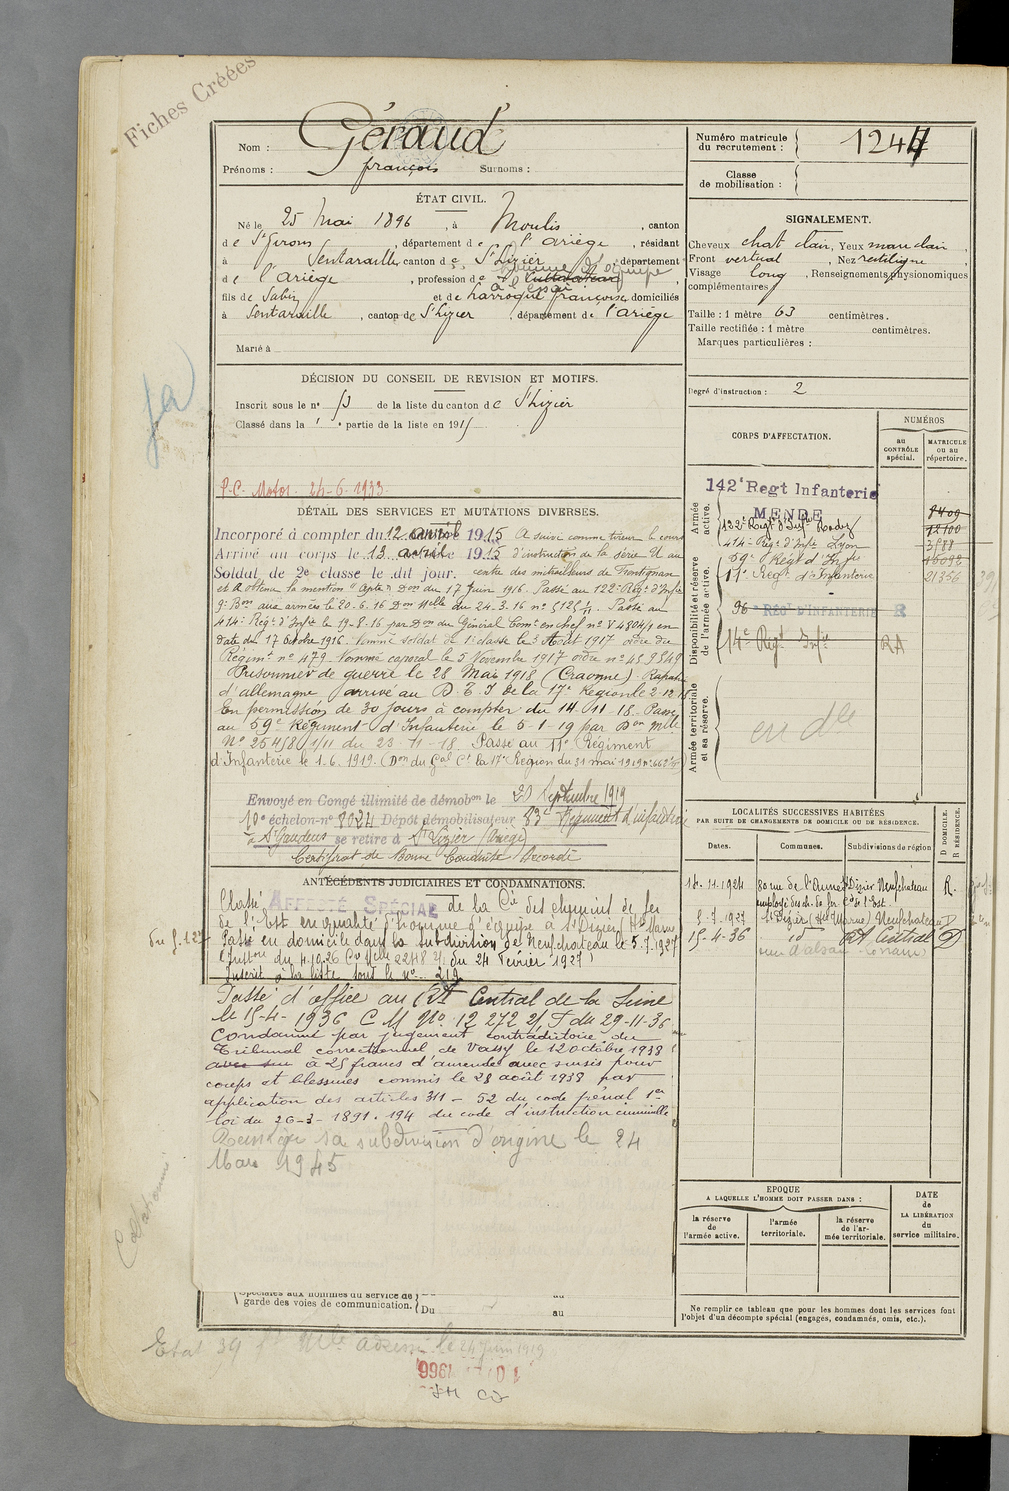 Fiches Créées
Nom : Géraud
Prénoms : françois Surnoms :
Numéro matricule du recrutement : 1247
Classe de mobilisation :
ÉTAT CIVIL.
Né le 25 Mai 1896, à Moulis, canton
de St Girons, département de l'Ariège, résidant
à Sentaraille canton de St Lizier, département
de l'Ariège, profession de cultivateur homme d'équipe
à l'essai
fils de Sabin et de Larroque françoise, domiciliés
à Sentaraille, canton de St Lizier, département de l'Ariège
Marié à
SIGNALEMENT.
Cheveux chat clair, Yeux mar clair,
Front vertical, Nez rectiligne,
Visage long, Renseignements physionomiques
complémentaires
Taille : 1 mètre 63 centimètres.
Taille rectifiée : 1 mètre centimètres.
Marques particulières :
Degré d'instruction : 2
DÉCISION DU CONSEIL DE REVISION ET MOTIFS.
Inscrit sous le n° de la liste du canton de St Lizier
Classé dans la 1e partie de la liste en 1915
P.C. Motos 24-6-1933
DÉTAIL DES SERVICES ET MUTATIONS DIVERSES.
Incorporé à compter du 12 avril 1915 A suivi comme tireur le cours
Arrivé au corps le 13 avril 1915 d'instruction de la série U au
Soldat de 2e classe le dit jour. centre des mitrailleurs de Frontignan
et a obtenu la mention "Apte" Don du 17 juin 1916. Passé au 122e Régt d'Infie
9e Bon aux armées le 20-6-16 Don Melle du 24-3-16 n° Passé au
414e Régt d'Infie le 19-8-16 par Don du Général Comt en chef n° 4804/1 en
date du 17 octobre 1916. Nommé soldat de 1e classe le 3 Août 1917 ordre du
Régimt n° 479. Nommé caporal le 5 Novembre 1917 ordre n°
Prisonnier de guerre le 28 Mai 1918 (Craonne) Rapatrié
d'allemagne arrivé au D.T.I de la 17e Région le 2-12-18
En permission de 30 jours à compter du 14-11-18. Passé
au 59e Régiment d'Infanterie le 5-1-19 par Don Mlle
N° 25458 1/11 du 23-11-18. Passé au 11e Régiment
d'Infanterie le 1-6-1919. (Don du Gal Ct la 17e Région du 31 mai 1919
Envoyé en Congé illimité de démobon le 20 Septembre 1919
10e échelon-n° 8024 Dépôt démobilisateur 83e Régiment d'infanterie
à St Gaudens se retire à St Lizier (Ariège)
Certificat de Bonne Conduite Accordé
ANTÉCÉDENTS JUDICIAIRES ET CONDAMNATIONS.
Classé AFFECTÉ SPÉCIAL de la Cie des chemins de fer
de l'Est en qualité d'homme d'équipe à St Dizier Hte Marne
du 5.1.27
Passé en domicile dans la subdivision de Neufchateau le 5.7.1927
(Instron du 4.10.26 Cre Melle 2248 du 24 Février 1927)
Inscrit à la liste sous le n° 219
Passé d'office au Rt Central de la Seine
le 15-4-1936 C M N° 12 272 2/ du 29-11-36
Condamné par jugement contradictoire du
Tribunal correctionnel de Vassy le 12 octobre 1938
avec sur à 25 francs d'amende avec sursis pour
coups et blessures commis le 28 août 1938 par
application des articles 311 - 52 du code pénal 1er
loi du 26-3-1891. 194 du code d'instruction criminelle
Réintégré sa subdivision d'origine le 24
Mars 1945
spéciales aux hommes du service de
garde des voies de communication. Du au
au
CORPS D'AFFECTATION.
NUMÉROS
au CONTRÔLE spécial.
MATRICULE ou au répertoire.
Armée active.
142e Regt Infanterie
MENDE 8409
122e Régt d'Infie Rodez 12100
414e Régt d'Infie Lyon
Disponibilité et réserve de l'armée active.
59e Régt d'Infie 16092
11e Régt d'Infanterie 21356
96e RÉGt D'INFANTERIE R
14e Régt Infie RA
Armée territoriale et sa réserve.
en dlle
LOCALITÉS SUCCESSIVES HABITÉES
PAR SUITE DE CHANGEMENTS DE DOMICILE OU DE RÉSIDENCE.
Dates. Communes. Subdivisions de région D DOMICILE. R RÉSIDENCE.
14.11.1924 80 rue de l'Annee St Dizier Neufchateau R.
employé des ch. de fer Cie de l'Est
5-7-1927 St Dizier (Hte Marne) Neufchateau D
15-4-36 id Rt Central D
EPOQUE
A LAQUELLE L'HOMME DOIT PASSER DANS :
la réserve de l'armée active.
l'armée territoriale.
la réserve de l'armée territoriale.
DATE de LA LIBÉRATION du service militaire.
Ne remplir ce tableau que pour les hommes dont les services font
l'objet d'un décompte spécial (engagés, condamnés, omis, etc.).
Etat 39
24 Juin 1919